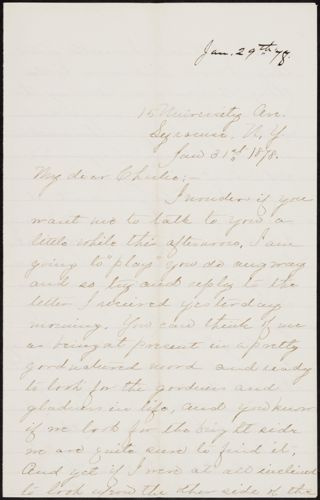 Jan. 29th 78.
15 University Av.
Syracuse, N. Y
Jan 31st 1878.
My dear Charlie:-
I wonder if you
want me to talk to you a
little while this afternoon. I am
going to "play" you do anyway
and so, try and reply to the
letter I received yesterday
morning. You can think of me
as being at present in a pretty
good natured mood and ready
to look for the goodness and
gladness in life, and you know
if we look for the bright side
we are quite sure to find it.
And yet if I were at all inclined
to look upon the other side of the